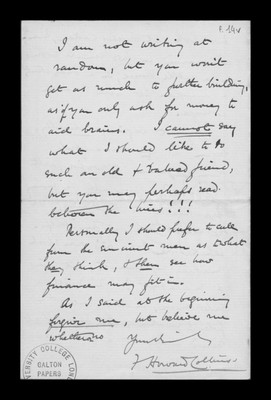 F. 34v
I am not writing at
random, but you won't
get as much to further building,
as if you only ask for money to
aid brains. I cannot say
what I should like to to
such an old & valued friend,
but you may perhaps read
between the lines!!!
Personally I should prefer to cull
from the eminent men as to what
they think, & then see how
finance may fit in.
As I said at the beginning
forgive me, but believe me
whatever
Yours
F Howard Collins
VERSITY COLLEGE LON
GALTON
PAPERS